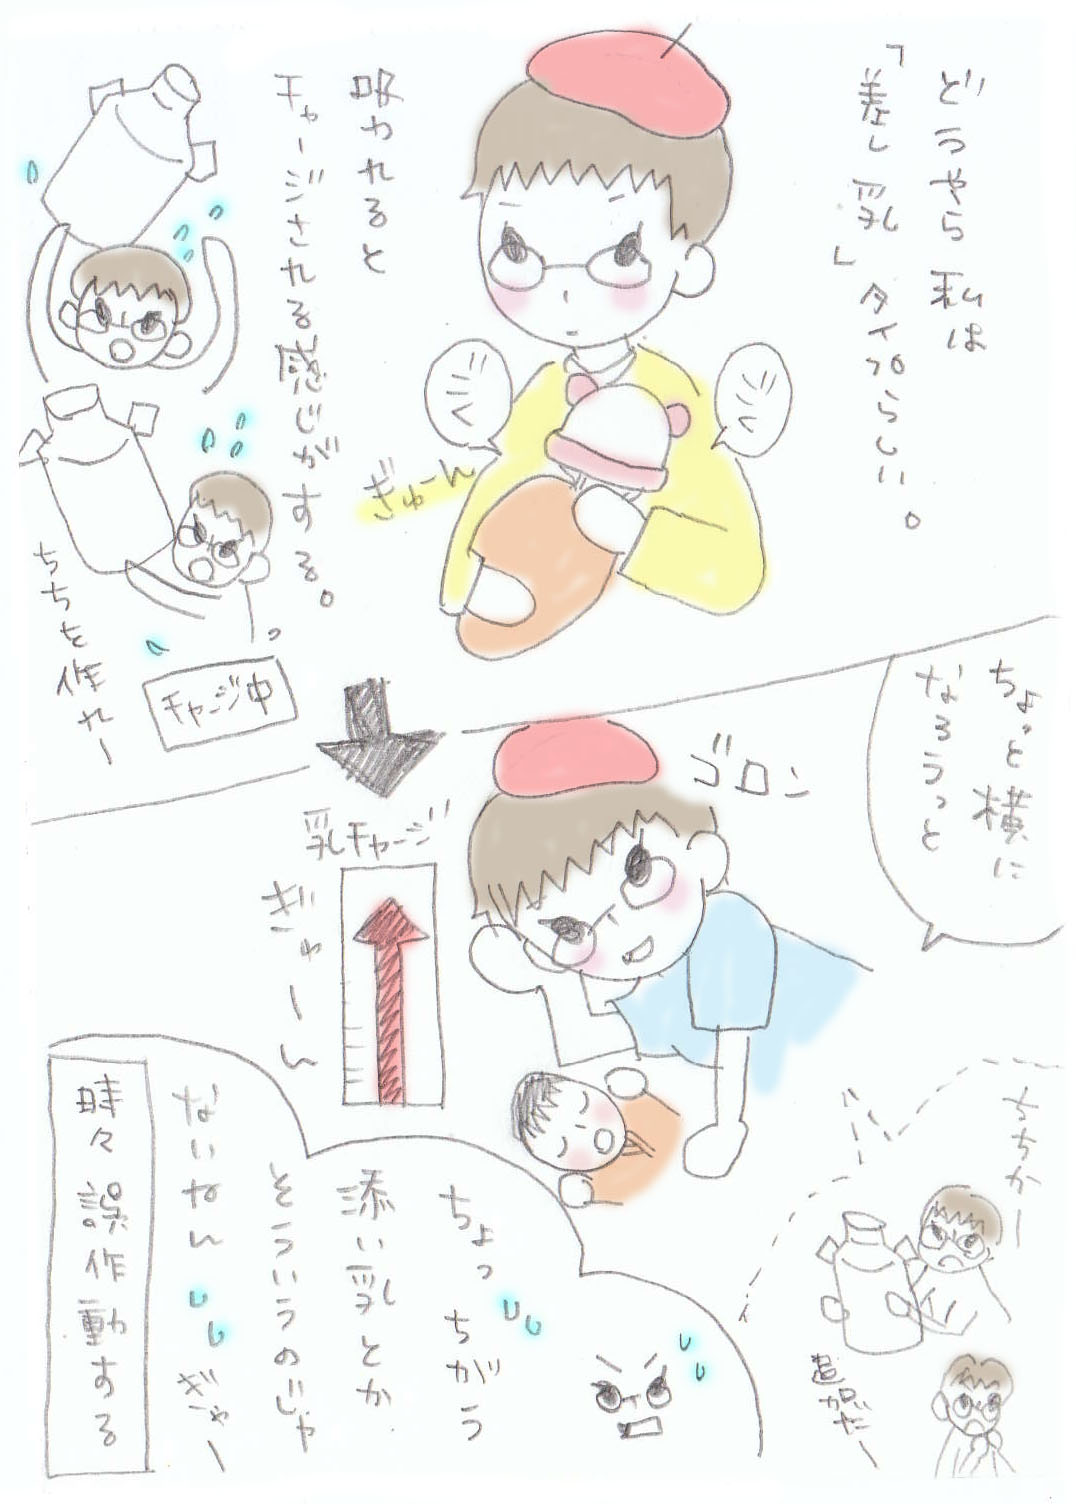 どうやら私は
「差し乳」タイプらしい。
ジジク
ジジク
ぎゅーん
吸われると
チャージされる感じがする。
ちちを作れー
チャージ中
ちょっと横に
なろうっと
ゴロン
乳チャージ
ぎゅーん
ちちかー
追加だー
ちょっ ちがう
添い乳とか
そういうのじゃ
ないねん
ぎゃー
時々誤作動する